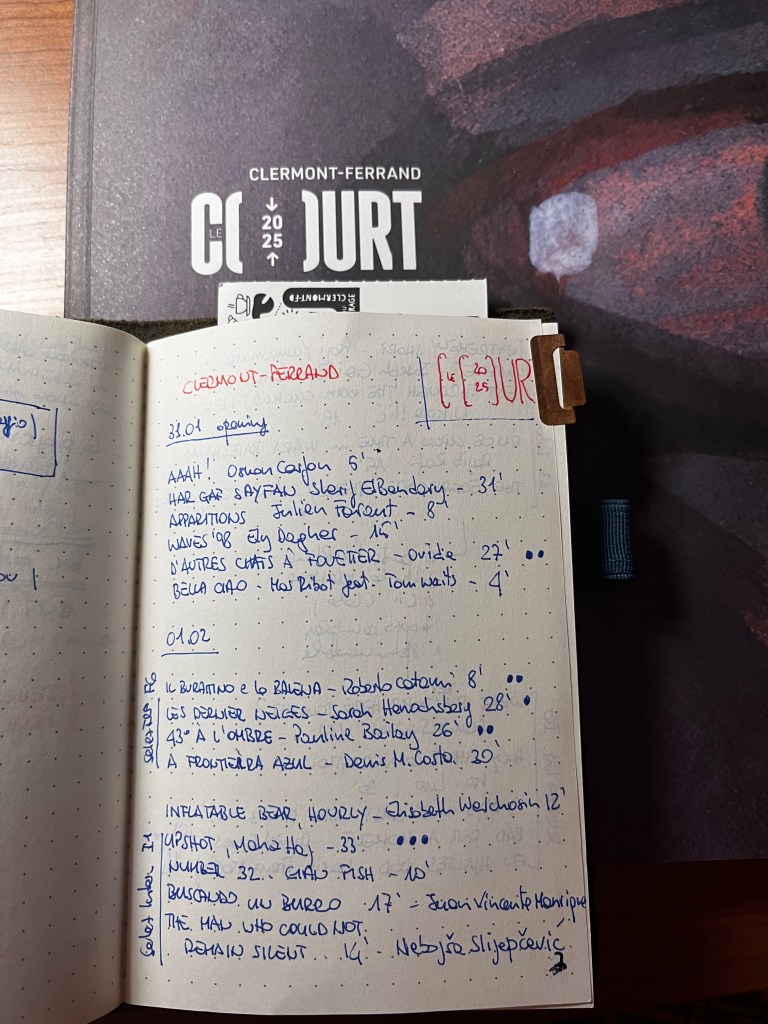 CLERMONT-FERRAND
LE COURT
2025
CLERMONT-FD
CLERMONT-FERRAND
[LE [20 25] UR
31.01 opening
AAAH! Osman Cerfon 5'
HAR GAF SAYFAN Sherif ElBendary - 31'
APPARITIONS Julien - 8'
WAVES '98 Ely Dagher - 15'
D'AUTRES CHATS À FOUETTER - Ovidie 27' ••
BELLA CIAO - Mas Ribot feat. Tom Waits - 4'
01.02
IL BURATTINO e LA BALENA - Roberto Catani 8' ••
LES DERNIER NEIGES - Sarah Henochsberg 28' •
43° À L'OMBRE - Pauline Bailay 26' ••
A FRONTEIRA AZUL - Denis M. Costa 30'
INFLATABLE BEAR HOURLY - Elisabeth 12'
Select Inter I1
UPSHOT, Maha Haj - 33' •••
NUMBER 32. GIAN FISH - 10'
BUSCANDO UN BURRO 17' - Juan Vincente Manrique
THE MAN WHO COULD NOT
REMAIN SILENT .. 14' - Nebojša Slijepčević